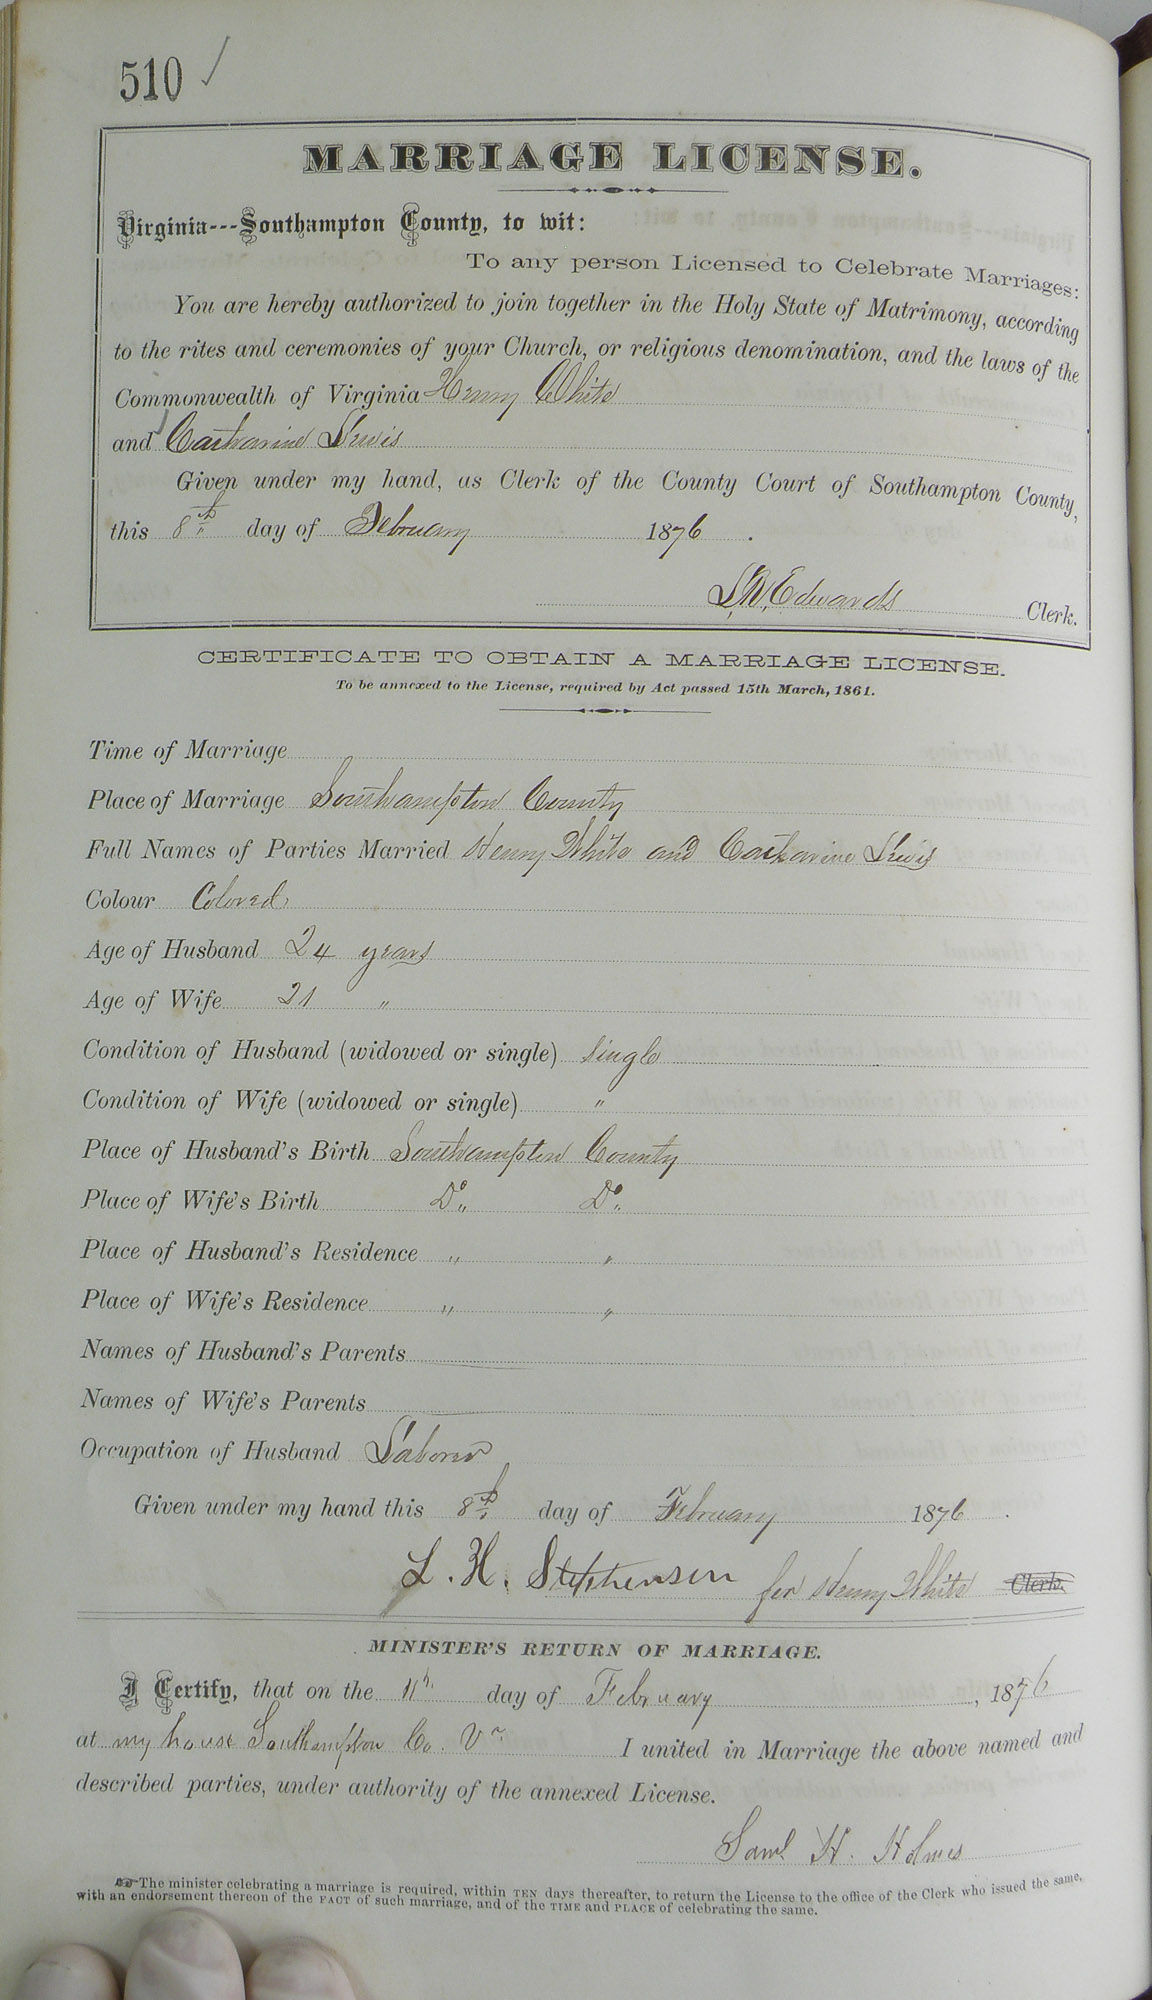 510 ✓
MARRIAGE LICENSE.
Virginia---Southampton County, to wit:
To any person Licensed to Celebrate Marriages:
You are hereby authorized to join together in the Holy State of Matrimony, according
to the rites and ceremonies of your Church, or religious denomination, and the laws of the
Commonwealth of Virginia Henry White
and Catharine Lewis
Given under my hand, as Clerk of the County Court of Southampton County,
this 8th day of February 1876.
L.R. Edwards Clerk.
CERTIFICATE TO OBTAIN A MARRIAGE LICENSE.
To be annexed to the License, required by Act passed 15th March, 1861.
Time of Marriage
Place of Marriage Southampton County
Full Names of Parties Married Henry White and Catharine Lewis
Colour Colored
Age of Husband 24 years
Age of Wife 21 "
Condition of Husband (widowed or single) single
Condition of Wife (widowed or single) "
Place of Husband's Birth Southampton County
Place of Wife's Birth Do. Do.
Place of Husband's Residence " "
Place of Wife's Residence " "
Names of Husband's Parents
Names of Wife's Parents
Occupation of Husband Laborer
Given under my hand this 8th day of February 1876.
L. H. Stephenson for Henry White Clerk.
MINISTER'S RETURN OF MARRIAGE.
I Certify, that on the 11th day of February, 1876
at my house Southampton Co. Va I united in Marriage the above named and
described parties, under authority of the annexed License.
Saml H. Holmes
☞The minister celebrating a marriage is required, within TEN days thereafter, to return the License to the office of the Clerk who issued the same,
with an endorsement thereon of the FACT of such marriage, and of the TIME and PLACE of celebrating the same.